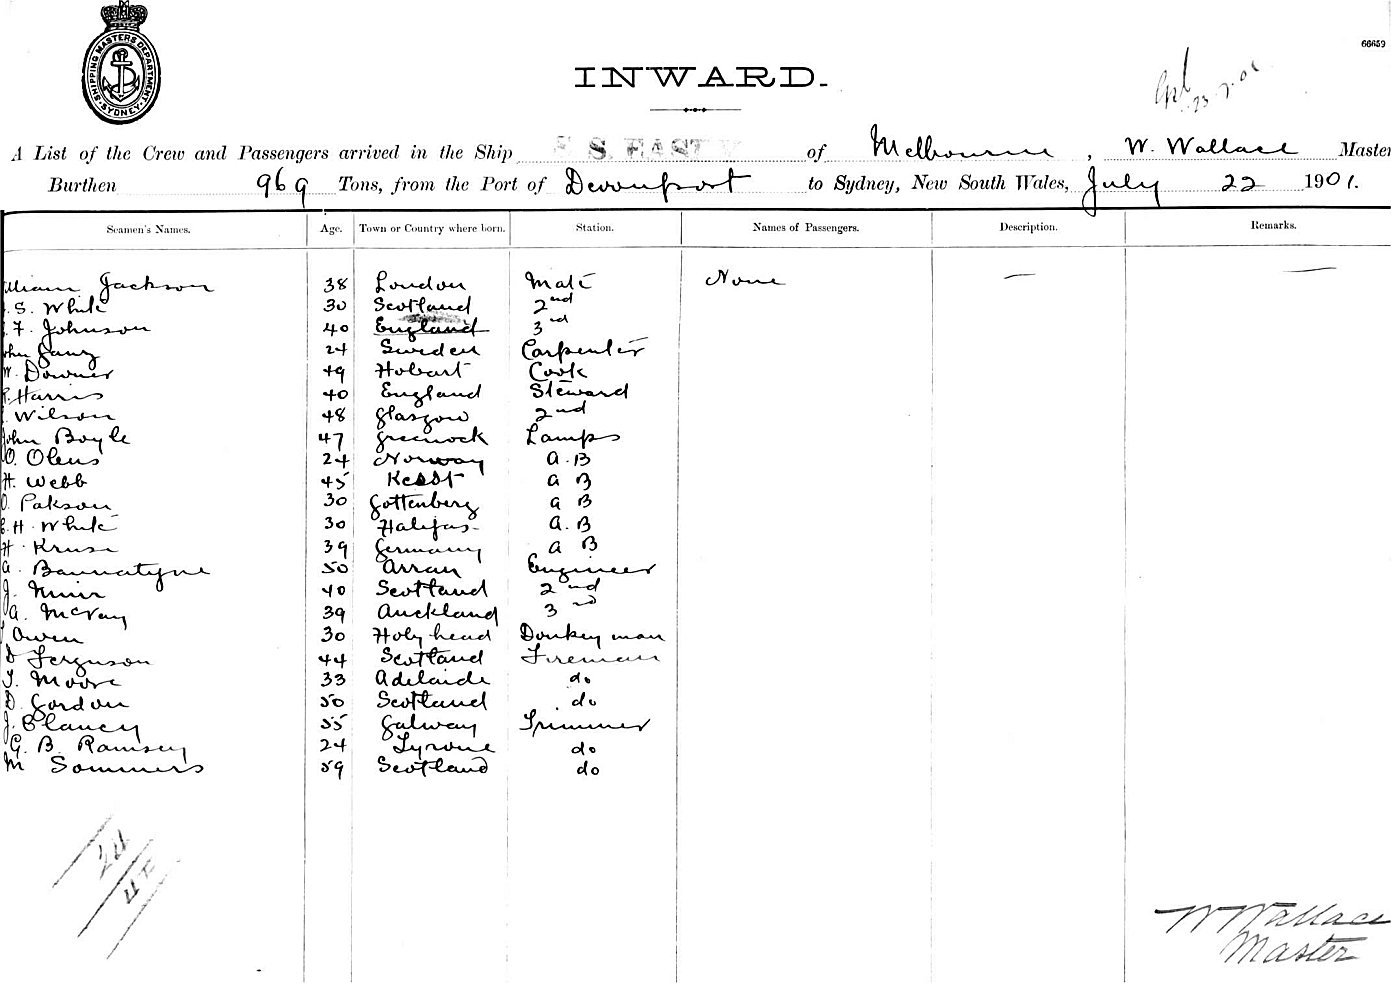 SHIPPING MASTERS DEPARTMENT SYDNEY
66659
INWARD.
A List of the Crew and Passengers arrived in the Ship S. S. EAST of Melbourne, W. Wallace Master
Burthen 969 Tons, from the Port of Devonport to Sydney, New South Wales, July 22 1901.
Seamen's Names. Age. Town or Country where born. Station. Names of Passengers. Description. Remarks.
illiam Jackson 38 London Mate None — —
S. White 30 Scotland 2nd
F. Johnson 40 England 3rd
ohn 24 Sweden Carpenter
W. Downer 49 Hobart Cook
R. Harris 40 England Steward
Wilson 48 Glasgow 2nd
John Boyle 47 Greenock Lamps
O. Olens 24 Norway A.B
H. Webb 45 Kent A B
O. Pakson 30 Gottenberg A B
H. White 30 Halifax A.B
H. Kruse 39 Germany A B
A. Bannatyne 50 Arran Engineer
J. Muir 40 Scotland 2nd
A. McVay 39 Auckland 3rd
Owen 30 Holyhead Donkeyman
D Ferguson 44 Scotland Fireman
T. Moore 33 Adelaide do
D. Gordon 50 Scotland do
J. Clancy 55 Galway Trimmer
G. B. Ramsey 24 Tyrone do
M Sommers 59 Scotland do
W Wallace
Master